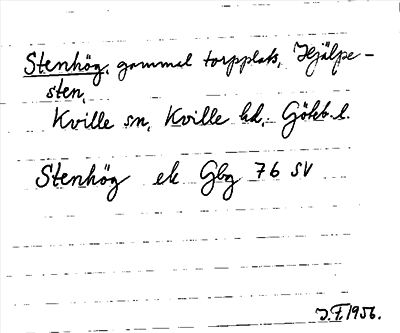 Stenhög, gammal torpplats, Hjälpe-
sten,
Kville sn, Kville hd, Göteb. l.
Stenhög ek Gbg 76 SV
J.F. 1956.